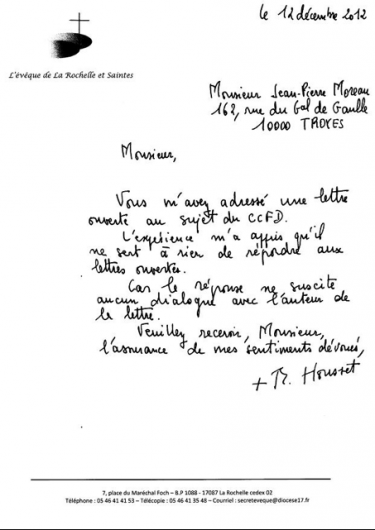 le 12 décembre 2012
L'évêque de La Rochelle et Saintes
Monsieur Jean-Pierre Moreau
162, rue du Gal de Gaulle
10000 TROYES
Monsieur,
Vous m'avez adressé une lettre
ouverte au sujet du CCFD.
L'expérience m'a appris qu'il
ne sert à rien de répondre aux
lettres ouvertes.
Car la réponse ne suscite
aucun dialogue avec l'auteur de
la lettre.
Veuillez recevoir, Monsieur,
l'assurance de mes sentiments dévoués,
+ B. Housset
7, place du Maréchal Foch – B.P 1088 - 17087 La Rochelle cedex 02
Téléphone : 05 46 41 41 53 – Télécopie : 05 46 41 35 48 – Courriel : secreteveque@diocese17.fr